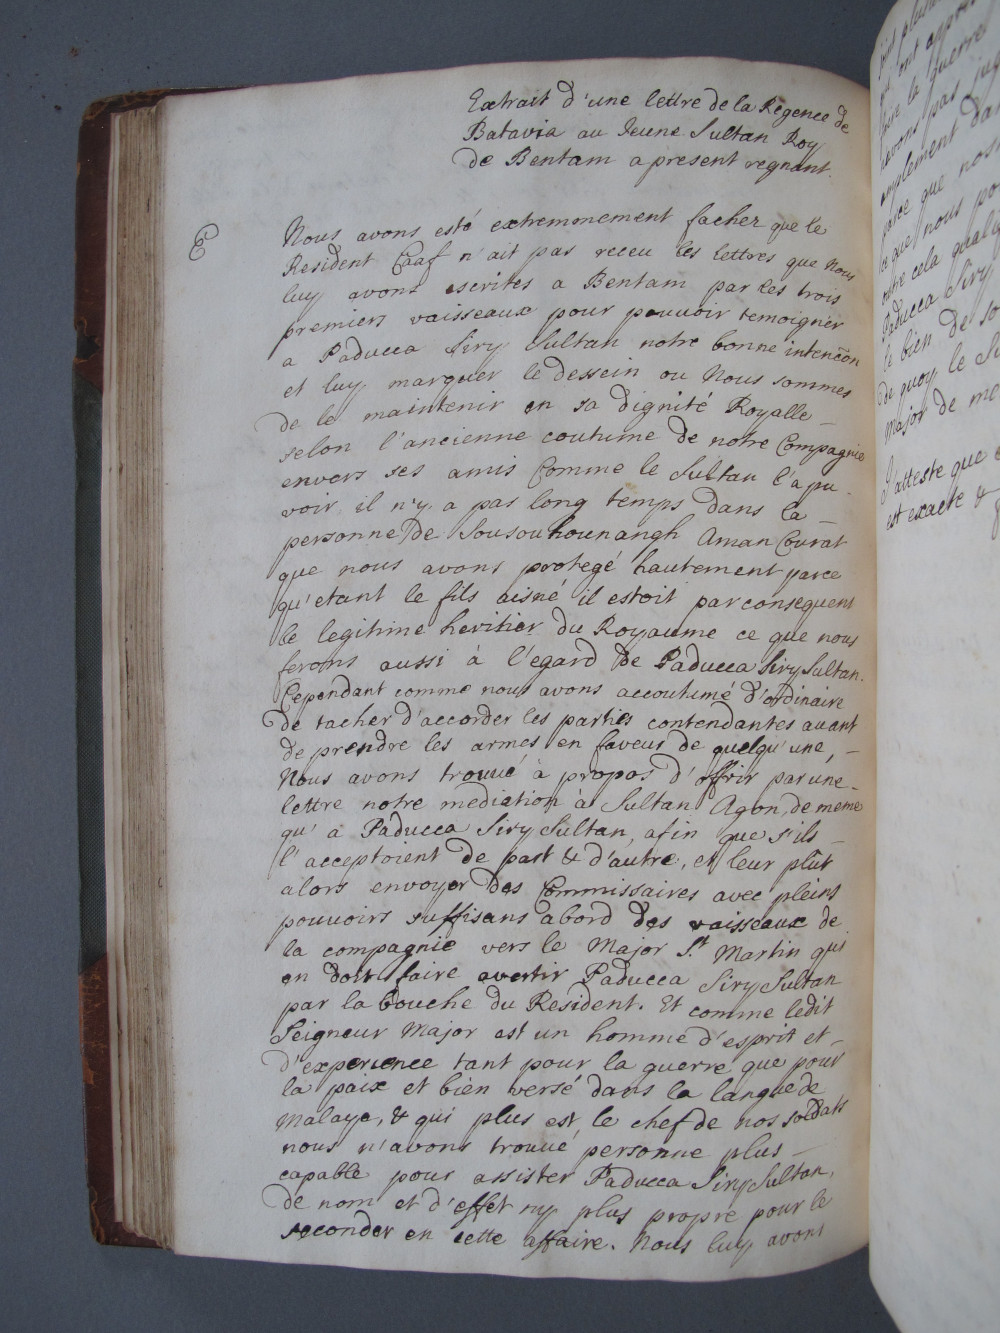 Extrait d'une lettre de la Regence de
Batavia au Jeune Sultan Roy
de Bentam a present regnant.
E
Nous avons esté extremement facher que le
Resident Caaf n'ait pas receu les lettres que Nous
luy avons escrites a Bentam par les trois
premiers vaisseaux pour pouvoir temoigner
a Paducca Siry Sultan notre bonne intencõn
et luy marquer le dessein ou Nous sommes
de le maintenir en sa dignité Royalle
selon l'ancienne coutume de notre Compagnie
envers ses amis Comme le Sultan l'a pu
voir il n'y a pas long temps dans la
personne de Sousouhounangh Aman Courat
que nous avons protegé hautement parce
qu'etant le fils aisné il estoit par consequent
le legitime heritier du Royaume ce que nous
ferons aussi à l'egard de Paducca Siry Sultan.
Cependant comme nous avons accoutumé d'ordinaire
de tacher d'accorder les parties contendantes avant
de prendre les armes en faveur de quelqu'une,
Nous avons trouué à propos d'offrir par une
lettre notre mediation à Sultan Agon, de meme
qu'a Paducca Siry Sultan, afin que s'ils
l'acceptoient de part & d'autre, et leur plût
alors envoyer des Commissaires avec pleins
pouvoirs suffisans abord des vaisseaux de
la compagnie vers le Major St. Martin qui
en doit faire avertir Paducca Siry Sultan
par la bouche du Resident. Et comme ledit
Seigneur Major est un homme d'esprit et
d'experience tant pour la guerre que pour
la paix et bien versé dans la langue de
Malaye, & qui plus est, le chef de nos soldats
nous n'avons trouué personne plus
capable pour assister Paducca Siry Sultan,
de nom et d'effet ny plus propre pour le
seconder en cette affaire. Nous luy avons
la guerre
avons pas
amplement
parce que nos
ce que nous
outre cela
Paducca Siry
le bien de
de quoy le
Major de
J'atteste que
est exacte &